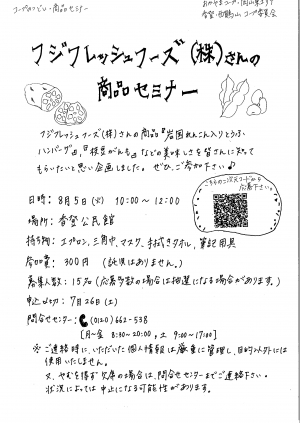 コープのつどい・商品セミナー
おかやまコープ・岡山東エリア
コープ委員会
フジフレッシュフーズ(株)さんの
商品セミナー
フジフレッシュフーズ(株)さんの商品『岩国れんこん入りとうふ
ハンバーグ』、『枝豆がんも』などの美味しさを皆さんに知って
もらいたいと思い企画しました。ぜひ、ご参加下さい♪
こちらの二次元コードから
応募下さい。
日時: 8月5日(火) 10:00〜12:00
場所: 香登公民館
持ち物: エプロン、三角巾、マスク、手拭きタオル、筆記用具
参加費: 300円 (託児はありません。)
募集人数: 15名 (応募多数の場合は抽選になる場合があります。)
申込〆切: 7月26日(土)
問合せセンター: (0120)662-538
[月〜金 8:30〜20:00, 土 9:00〜17:00]
※ご連絡時に、いただいた個人情報は厳重に管理し、目的以外には
使用いたしません。
又、やむを得ず欠席の場合は、問合せセンターまでご連絡下さい。
状況によっては中止になる可能性があります。